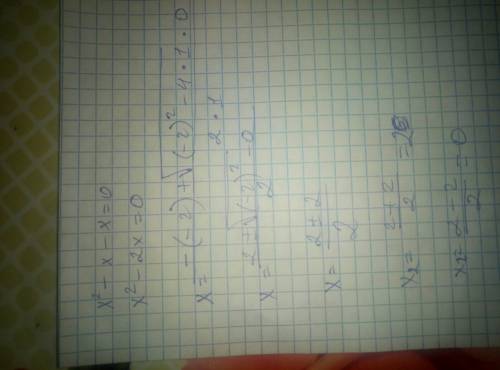 x² - x - x = 0
x² - 2x = 0
x = (-(-2) + √((-2)² - 4 · 1 · 0)) / (2 · 1)
x = (2 + √((-2)² - 0)) / 2
x = (2 ± 2) / 2
x₂ = (2 + 2) / 2 = 2
x₂ = (2 - 2) / 2 = 0